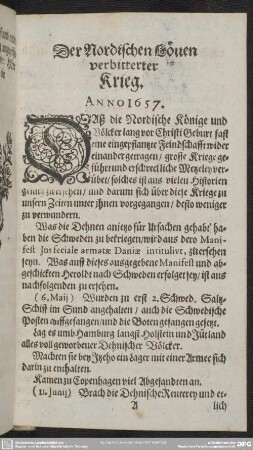 Der Nordischen Löuen
verbitterter
Krieg.
ANNO 1657.
DAß die Nordische Könige und
Völcker lang vor Christi Geburt fast
eine eingepflantze Feindschafft wider
einander getragen / grosse Kriege ge-
führt und erschreckliche Metzeley ver-
übet / solches ist aus vielen Historien
genug zu ersehen / und darum sich über diese Kriege zu
unsern Zeiten unter ihnen vorgegangen / desto weniger
zu verwundern.
Was die Dehnen anietzo für Ursachen gehabt ha-
ben die Schweden zu bekriegen / wird aus dero Mani-
fest Jus feciale armatæ Daniæ intitulirt, zu ersehen
seyn. Was auff dieses ausgegebene Manifest und ab-
geschickten Herold nach Schweden erfolget sey / ist aus
nachfolgenden zu ersehen.
(6. Maij) Wurden zu erst 2. Schwed. Saltz-
Schiff im Sund angehalten / auch die Schwedische
Posten auffgefangen / und die Boten gefangen gesetzt.
Lag es umb Hamburg langst Holstein und Jütland
alles voll geworbener Dehnischer Völcker.
Machten sie bey Jtzeho ein Lager mit einer Armee sich
darin zu enthalten.
Kamen zu Copenhagen viel Abgesandten an.
(11. Junij) Brach die Dehnische Reuterey und et-
A lich